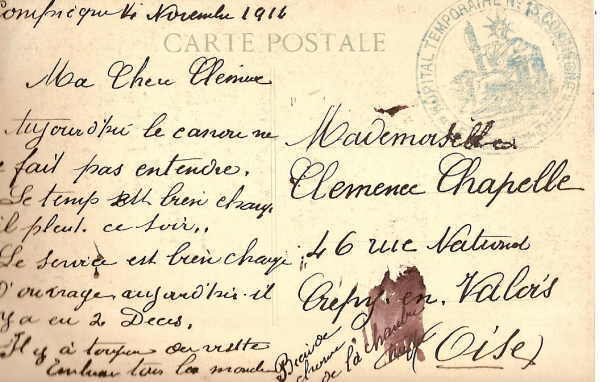 Compiègne 4 Novembre 1916
CARTE POSTALE
HOPITAL TEMPORAIRE N° 15 COMPIEGNE
Ma Chere Clemence
Aujourd'hui le canon ne
fait pas entendre.
Le temps est bien changé
il pleut ce soir.
Le service est bien chargé
D'ouvrage aujourd'hui il
y a eu 2 Deces.
Il y a toujours
tous les
Mademoiselle
Clemence Chapelle
46 rue National
Crépy en Valois
(Oise)
de la chambre